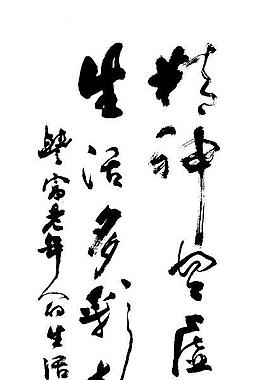 精神空虚
生活多彩
豐富老年人的生活